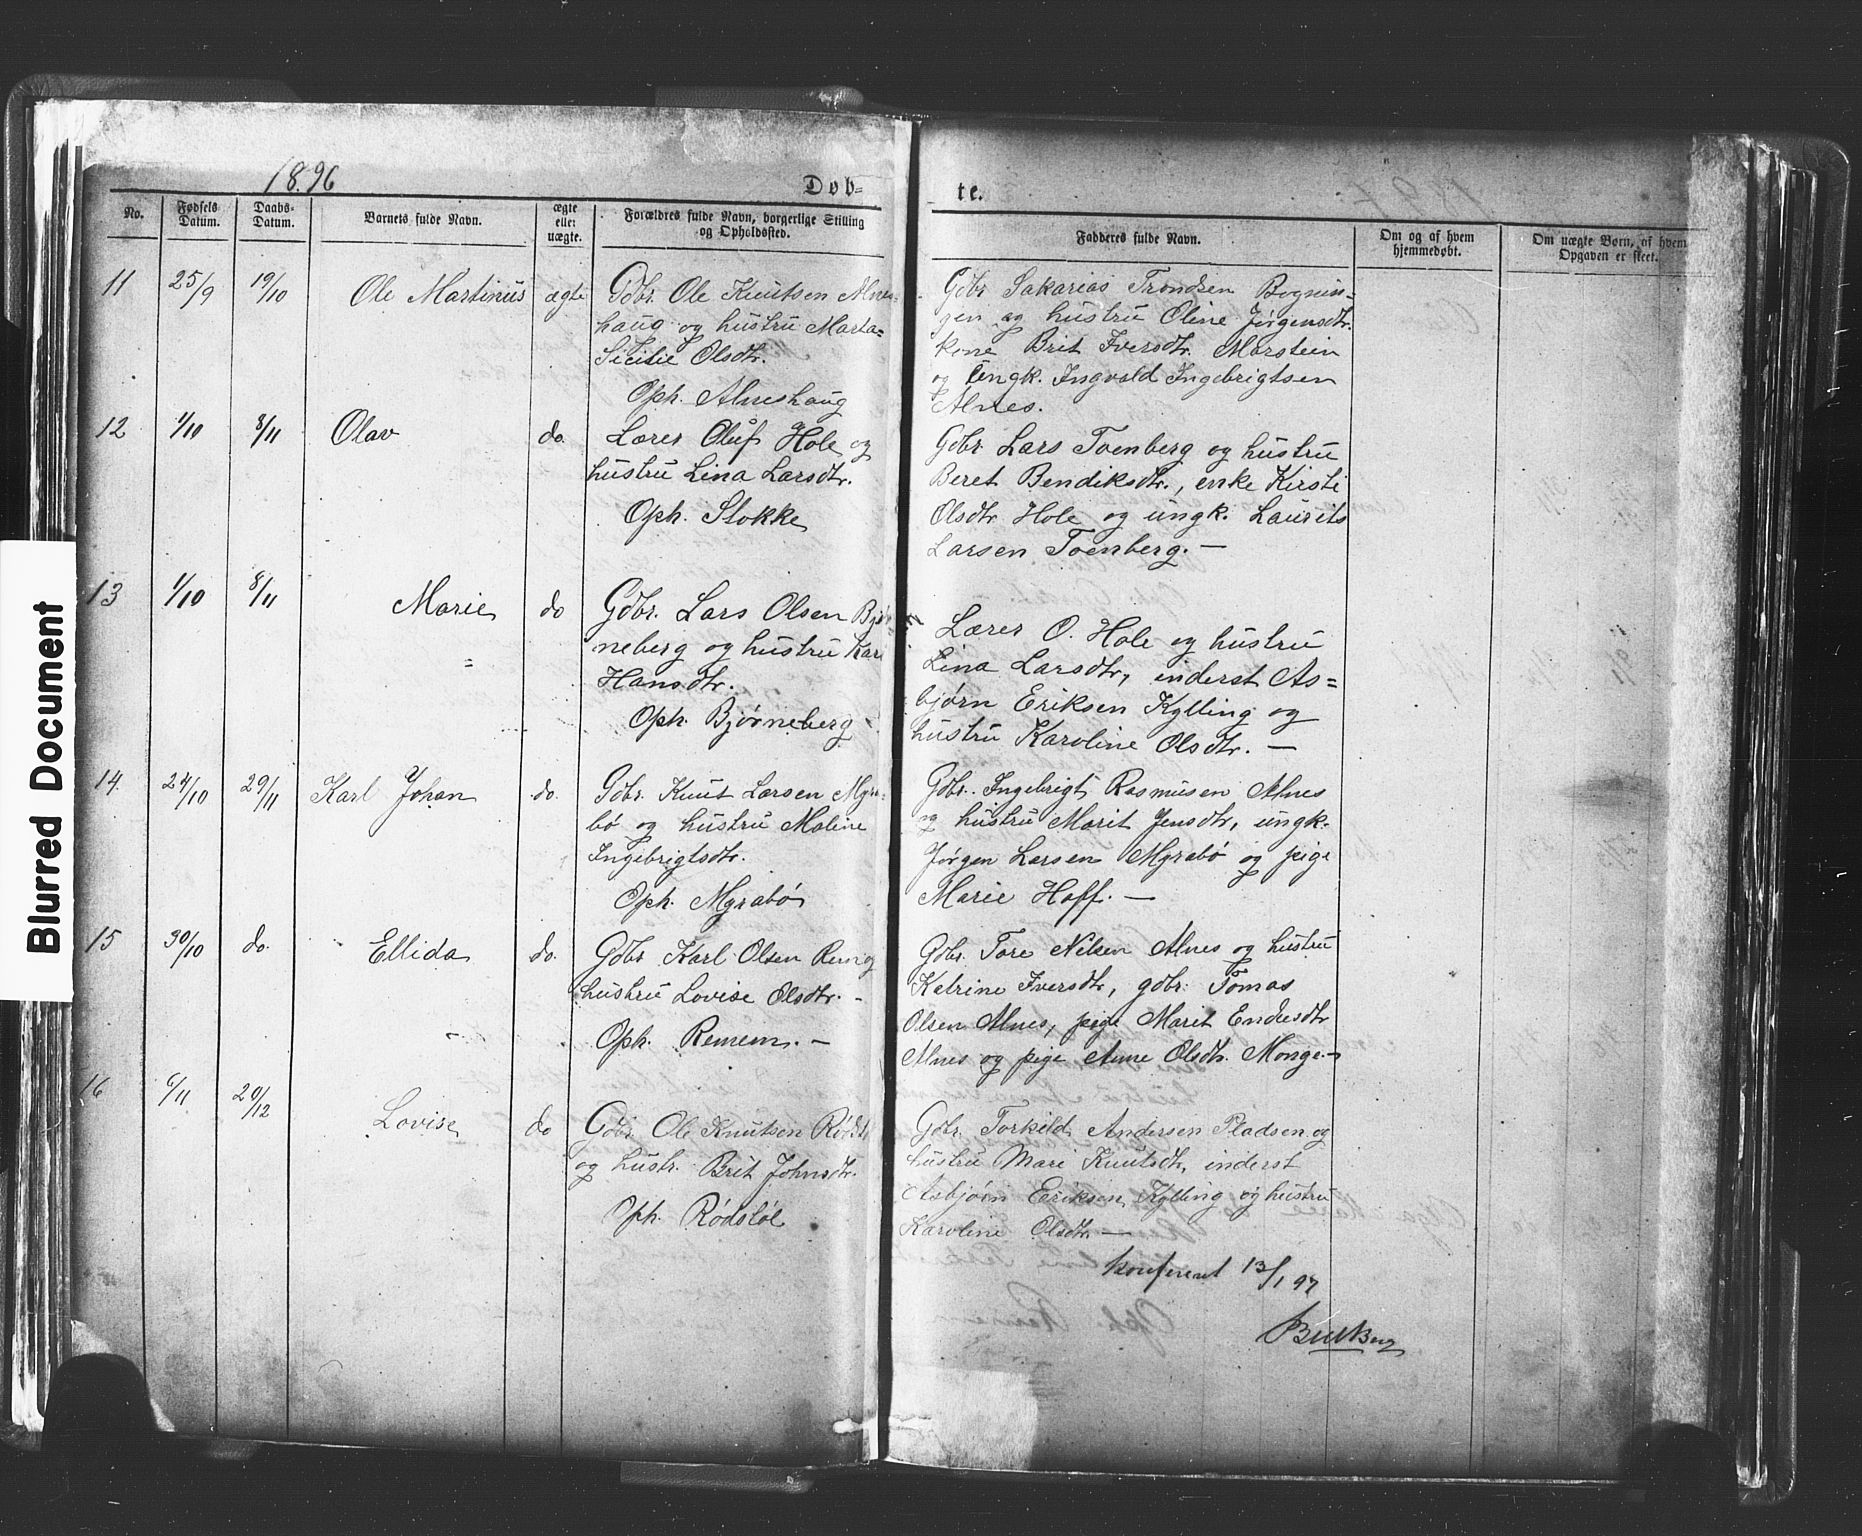 Blurred Document
1896
Døb-
te.
No.
Fødsels Datum.
Daabs- Datum.
Barnets fulde Navn.
ægte eller uægte.
Forældres fulde Navn, borgerlige Stilling og Opholdssted.
Fadderes fulde Navn.
Om og af hvem hjemmedøbt.
Om uægte Børn, af hvem Opgaven er skeet.
11 25/9 19/10 Ole Martinus ægte
Gdbr. Ole Knutsen Alnes-
haug og hustru Marta-
Sicilie Olsdtr.
Oph. Alneshaug
Gdbr Sakarias Trondsen Bognin-
gen og hustru Oline Jørgensdtr.
kone Brit Iversdtr. Marstein
og Ungk. Ingvald Ingebrigtsen
Alnes.
12 1/10 8/11 Olav do.
Lærer Oluf Hole og
hustru Lina Larsdtr.
Oph. Stokke
Gdbr Lars Toenberg og hustru
Beret Bendiksdtr., enke Kirsti
Olsdtr Hole og ungk. Laurits
Larsen Toenberg. —
13 1/10 8/11 Marie do
Gdbr. Lars Olsen Bjør-
neberg og hustru Kari
Hansdtr.
Oph. Bjørneberg
Lærer O. Hole og hustru
Lina Larsdtr, inderst As=
bjørn Eriksen Kylling og
hustru Karoline Olsdtr. —
14. 24/10 29/11 Karl Johan do.
Gdbr. Knut Larsen Myra-
bø og hustru Maline
Ingebrigtsdtr.
Oph. Myrabø
Gdbr. Ingebrigt Rasmusen Alnes
og hustru Marit Jensdtr, ungk.
Jørgen Larsen Myrabø og pige
Marie Hoff. —
15 30/10 do. Ellida do.
Gdbr Karl Olsen Rem og
hustru Lovise Olsdtr. -
Oph. Remem. —
Gdbr. Tore Nilsen Alnes og hustru
Katrine Iversdtr, gdbr. Tomas
Olsen Alnes, pige Marit Endresdtr
Alnes og pige Anne Olsdtr. Monge. —
16 6/11 20/12 Lovise do
Gdbr. Ole Knutsen Rødst
og hustr. Brit Johnsdtr.
Oph. Rødstøl
Gdbr. Torkild Andersen Pladsen og
hustru Mari Knutsdtr, inderst
Asbjørn Eriksen Kylling og hustru
Karoline Olsdtr. —
konfereret 13/1 97